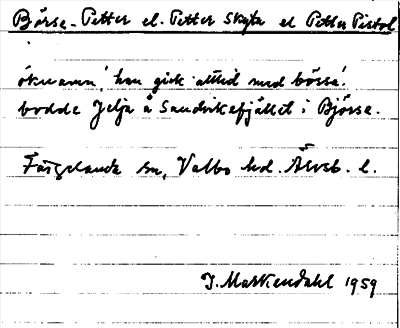 Börse-Petter el. Petter Skytt el Petter Pistol
öknamn! han gick alltid med bössa!
bodde på Sandviksfjället i Björse.
Färgelanda sn, Valbo hd. Älvsb. l.
J. Markendahl 1959